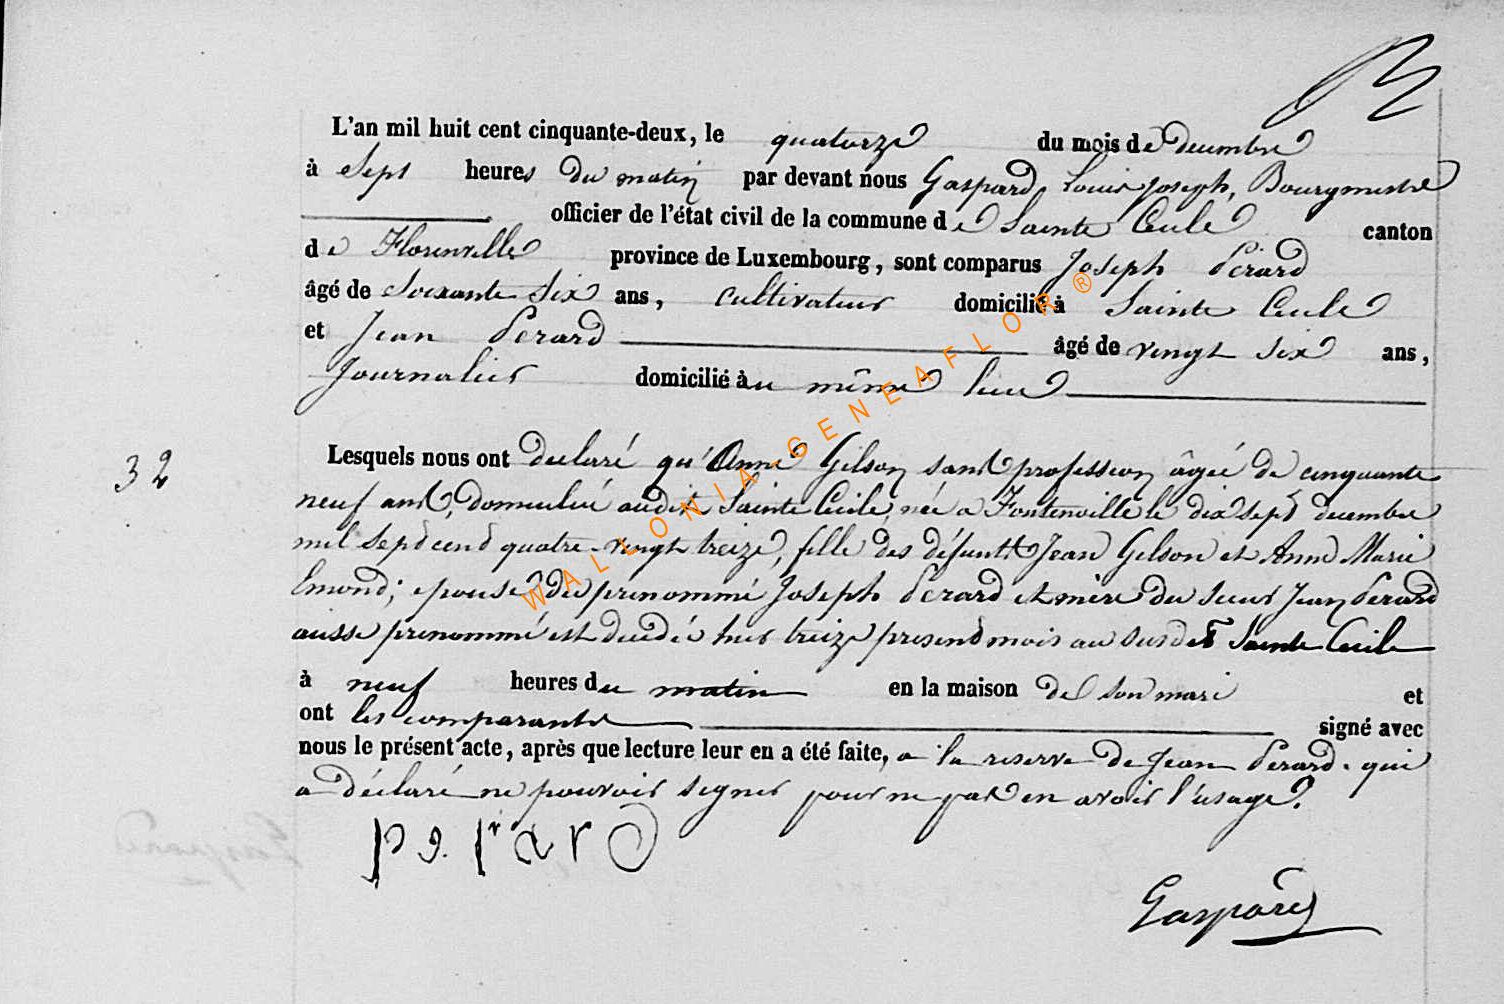 L'an mil huit cent cinquante-deux, le quatorze du mois de decembre
à Sept heures du matin par devant nous Gaspard, Louis Joseph, Bourgmestre
officier de l'état civil de la commune de Sainte Cecile canton
de Florenville province de Luxembourg, sont comparus Joseph Perard
âgé de Soixante Six ans, cultivateur domicilié à Sainte Cecile
et Jean Perard âgé de vingt six ans,
Journalier domicilié au même lieu
32
Lesquels nous ont declaré qu'Anne Gilson sans profession âgée de cinquante
neuf ans, domiciliée audit Sainte Cecile, née a Fontenoille le dix sept decembre
mil sept cent quatre-vingt treize, fille des défunts Jean Gilson et Anne Marie
Emond; epouse du prenommé Joseph Perard et mère du sieur Jean Perard
aussi prenommé est decedée hier treize present mois au susdit Sainte Cecile
à neuf heures du matin en la maison de son mari et
ont les comparants signé avec
nous le présent acte, après que lecture leur en a été faite, a la reserve de Jean Perard. qui
a déclaré ne pouvoir signer pour ne pas en avoir l'usage.
Gaspard
WALLONIA-GENEAFLOR ®